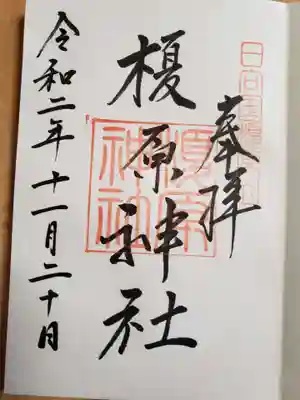 奉拝
榎原神社
榎原
神社
令和二年十一月二十日